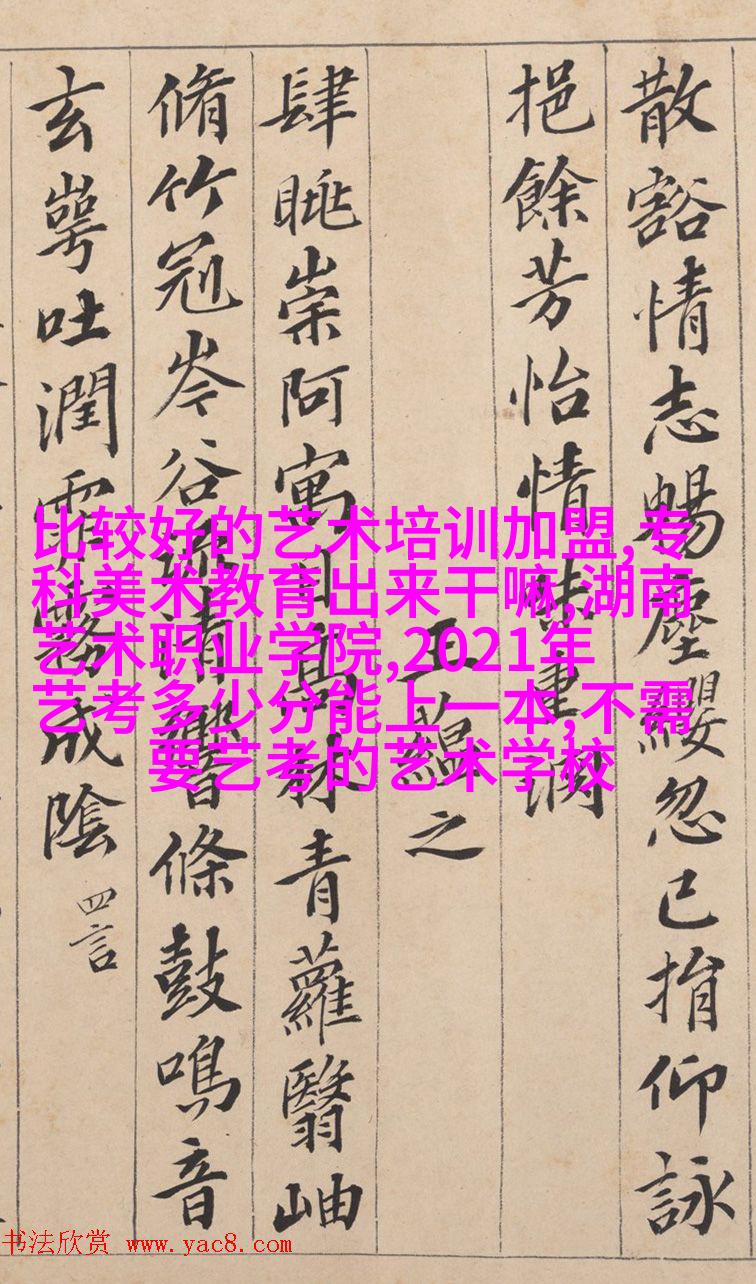 散豁情志暢塵纓忽已捐仰詠
挹餘芳怡情味重渊
王蘊之
肆眺崇阿寓目高林青蘿翳岫
脩竹冠岑谷流清響條鼓鳴音
玄崿吐潤霏霧成陰 四言
比较好的艺术培训加盟,专
科美术教育出来干嘛,湖南
艺术职业学院,2021年
艺考多少分能上一本,不需
要艺考的艺术学校
书法欣赏 www.yac8.com